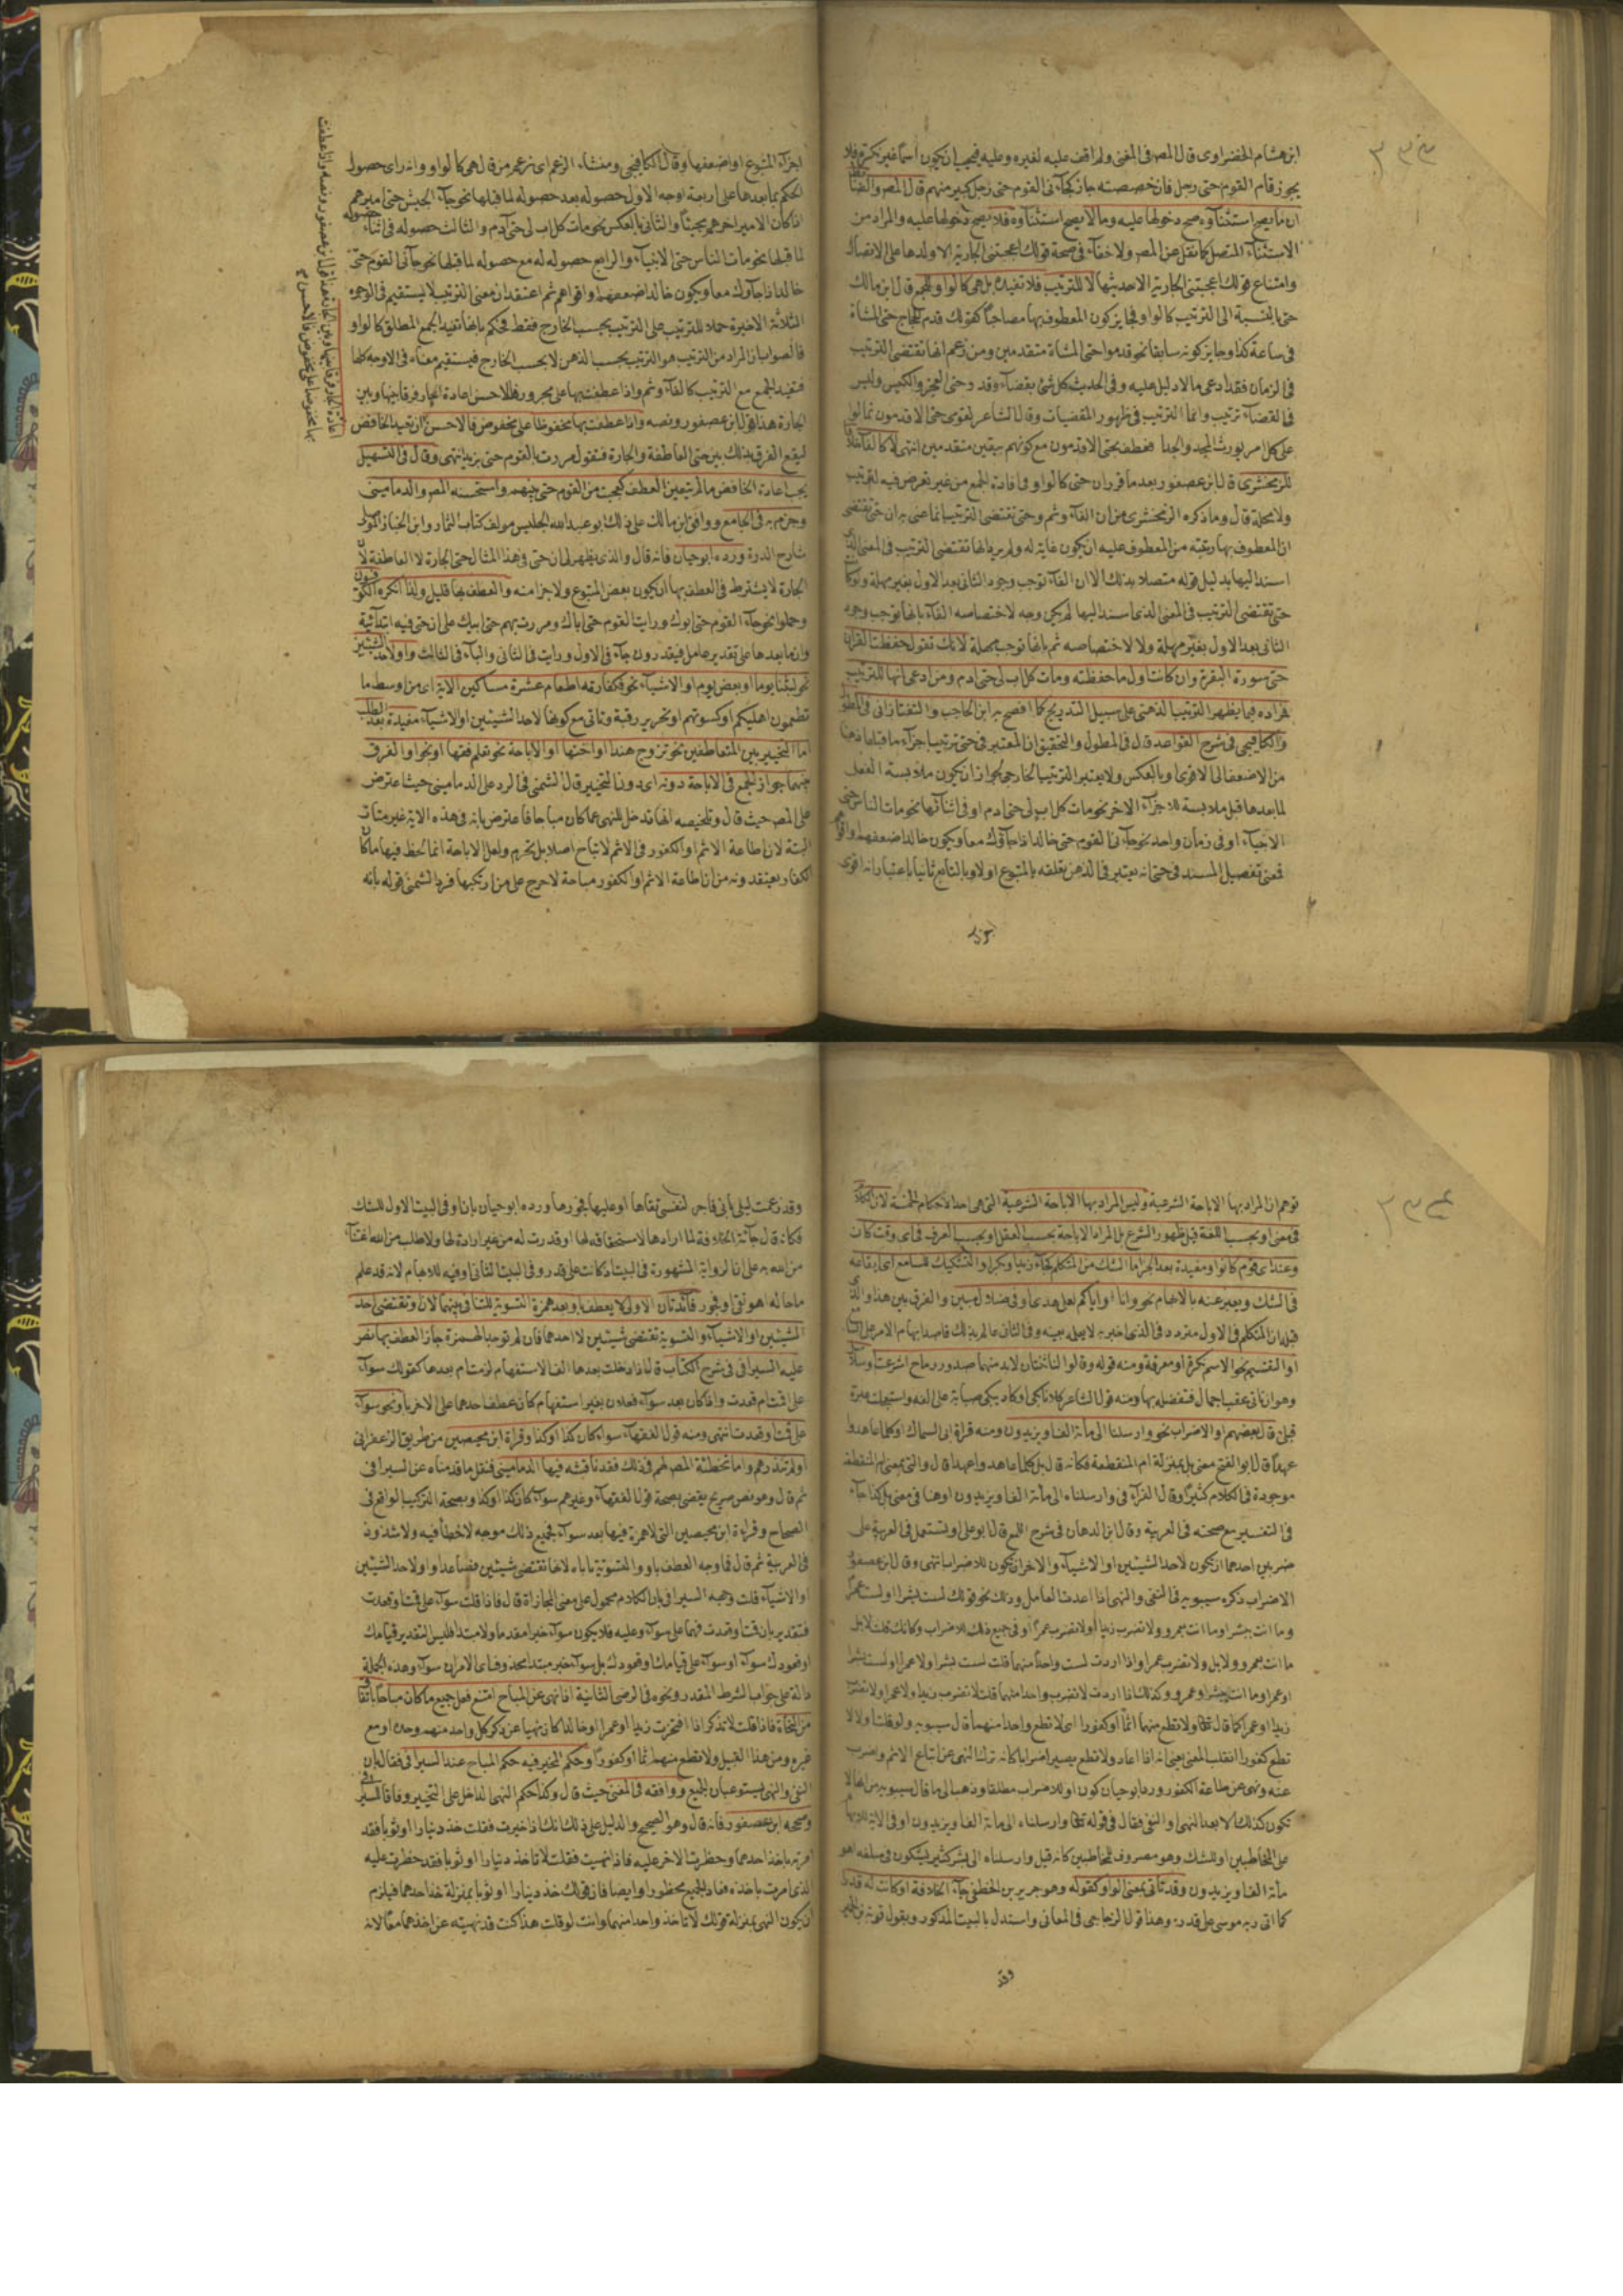 ٣٣٣
ابن هشام الخضراوى قال المص فى المغنى ولم اقف عليه لغيره وعليه فيجب ان يكون اسما غير نكرة فلا
يجوز قام القوم حتى رجل فان خصصته جاز كجاءنى القوم حتى رجل كبير منهم قال المص والضابط
ان ما يصح استثناؤه صح دخولها عليه وما لا يصح استثناؤه فلا يصح دخولها عليه والمراد من
الاستثناء المتصل كما نقل عن المص ولا خفاء فى صحة قولك اعجبتنى الجارية الا ولدها على الانفصال
وامتناع قولك اعجبتنى الجارية الا حديثها لا للترتيب فلا تفيده بل هى كالواو للجمع قال ابن مالك
حتى بالنسبة الى الترتيب كالواو فجايز كون المعطوف بها مصاحبا كقولك قدم الحجاج حتى المشاة
فى ساعة كذا وجايز كونه سابقا نحو قدموا حتى المشاة متقدمين ومن زعم انها تقتضى الترتيب
فى الزمان فقد ادعى ما لا دليل عليه وفى الحديث كل شئ بقضاء وقدر حتى العجز والكيس وليس
فى القضاء ترتيب وانما الترتيب فى ظهور المقضيات وقال الشاعر لقومى حتى الاقدمون تمالوا
على كل امر يورث المجد والحمدا فعطف بحتى الاقدمون مع كونهم متقدمين انتهى لا كالفاء خلافا
للزمخشرى قال ابن عصفور بعد ما قرر ان حتى كالواو فى افادة الجمع من غير تعرض فيه لترتيب
ولا مهلة قال وما ذكره الزمخشرى من ان الفاء وثم وحتى تقتضى الترتيب انما عنى به ان حتى تقتضى
ان المعطوف بها رتبته من المعطوف عليه ان يكون غاية له ولم يرد انها تقتضى الترتيب فى المعنى الذى
اسند اليها بدليل قوله متصلا بذلك الا ان الفاء توجب وجود الثانى بعد الاول بغير مهلة ولو كانت
حتى تقتضى الترتيب فى المعنى الذى اسند اليها لم يكن وجه لاختصاصه الفاء بانها توجب وجود
الثانى بعد الاول بغير مهلة ولا لاختصاصه ثم بانها توجب مهلة لانك تقول حفظت القران
حتى سورة البقرة وان كانت اول ما حفظته ومات كل اب لى حتى ادم ومن ادعى انها للترتيب
فمراده فيما يظهر الترتيب الذهنى على سبيل التدريج كما افصح به ابن الحاجب والتفتازانى فى المطول
والكافيجى فى شرح القواعد قال فى المطول والتحقيق ان المعتبر فى حتى ترتيب اجزاء ما قبلها ذهنا
من الاضعف الى الاقوى او بالعكس ولا يعتبر الترتيب الخارجى لجواز ان يكون ملابسة الفعل
لما بعدها قبل ملابسة للاجزاء الاخر نحو مات كل اب لى حتى ادم او فى اثنائها نحو مات الناس حتى
الانبياء او فى زمان واحد نحو جاءنى القوم حتى خالد اذا جاؤك معا ويكون خالد اضعفهم او اقواهم
فمعنى تفصيل المسند فى حتى انه يعتبر فى الذهن تعلقه بالمتبوع اولا وبالتابع ثانيا باعتبار انه اقوى
اجزاء المتبوع او اضعفها وقال الكافيجى ومنشاء الزعم اى زعم من قال هى كالواو وانه راى حصول
الحكم بما بعدها على اربعة اوجه الاول حصوله بعد حصوله لما قبلها نحو جاء الجيش حتى اميرهم
اذا كان الامير اخرهم مجيئا والثانى بالعكس نحو مات كل اب لى حتى آدم والثالث حصوله فى اثناء حصوله
لما قبلها نحو مات الناس حتى الانبياء والرابع حصوله له مع حصوله لما قبلها نحو جاءنى القوم حتى
خالد اذا جاؤك معا ويكون خالد اضعفهم او اقواهم ثم اعتقد ان معنى الترتيب لا يستقيم فى الاوجه
الثلاثة الاخيرة حملا للترتيب على الترتيب بحسب الخارج فقط فحكم بانها تفيد الجمع المطلق كالواو
فالصواب ان المراد من الترتيب هو الترتيب بحسب الذهن لا بحسب الخارج فيستقيم معناه فى الاوجه كلها
فتفيد الجمع مع الترتيب كالفاء وثم واذا عطفت بها على مجرور فالاحسن اعادة الجار فرقا بينها وبين
الجارة هذا قول ابن عصفور ونصه واذا عطفت بها مخفوظا على مخفوض فالاحسن ان تعيد الخافض
ليقع الفرق بذلك بين حتى العاطفة والجارة فتقول مررت بالقوم حتى بزيد انتهى وقال فى التسهيل
يجب اعادة الخافض ما لم يتعين العطف كعجبت من القوم حتى بنيهم واستحسنه المص والدمامينى
وجزم به فى الجامع ووافق ابن مالك على ذلك ابو عبد الله الجليس مولف كتاب الثمار وابن الخباز الموصلى
شارح الدرة ورده ابو حيان فانه قال والذى يظهر لى ان حتى فى هذا المثال حتى الجارة لا العاطفة لان
الجارة لا يشترط فى العطف بها ان يكون بعض المتبوع ولا جزا منه والعطف بها قليل ولذا انكره الكوفيون
وحملوا نحو جاء القوم حتى ابوك ورايت القوم حتى اباك ومررت بهم حتى ابيك على ان حتى فيه ابتدائية
وان ما بعدها على تقدير عامل فيقدرون جاء فى الاول ورايت فى الثانى والباء فى الثالث واو لاحد الشيئين
نحو لبثنا يوما او بعض يوم او الاشياء نحو فكفارته اطعام عشرة مساكين الاية اى من اوسط ما
تطعمون اهليكم او كسوتهم او تحرير رقبة وتاتى مع كونها لاحد الشيئين او الاشياء مفيدة بعد الطلب
اما التخيير بين المتعاطفين نحو تزوج هندا او اختها او الاباحة نحو تعلم فقها او نحوا والفرق
بينهما جواز الجمع فى الاباحة دونه اى دون التخيير قال الشمنى فى الرد على الدمامينى حيث اعترض
على المص حيث قال وتلخيصه انها تدخل للنهى عما كان مباحا فاعترض بانه فى هذه الاية غير متات
البتة لان اطاعة الاثم او الكفور فى الاثم لا تباح اصلا بل تحرم ولعل الاباحة انما لحظ فيها ما كان
الكفار يعتقدونه من ان اطاعة الاثم او الكفور مباحة لا حرج على من ارتكبها فرد الشمنى قوله بانه
اعادة الجار فرقا بينها وبين الجارة هذا قول ابن عصفور ونصه واذا عطفت
بها مخفوضا على مخفوض فالاحسن
٣٣٤
توهم ان المراد بها الاباحة الشرعية وليس المراد بها الاباحة الشرعية التى هى احد الاحكام الخمسة لان الكلام
فى معنى او بحسب اللغة قبل ظهور الشرع بل المراد الاباحة بحسب العقل او بحسب العرف فى اى وقت كان
وعند اى قوم كانوا ومفيدة بعد الخبر اما الشك من المتكلم كجاء زيد او بكر او التشكيك للسامع اى ايقاعه
فى الشك ويعبر عنه بالابهام نحو وانا او اياكم لعلى هدى او فى ضلال مبين والفرق بين هذا والذى
قبله ان المتكلم فى الاول متردد فى الذى اخبر به لا يعلمه بعينه وفى الثانى عالم بذلك قاصد ابهام الامر على السامع
او التقسيم نحو الاسم نكرة او معرفة ومنه قوله وقالوا لنا ثنتان لا بد منهما صدور رماح اشرعت او سلاسل
وهو ان تاتى عقب اجمال فتفصله بها ومنه قول الشاعر
قيل قال بعضهم والاضراب نحو وارسلناه الى مائة الف او يزيدون ومنه قراة ابى السمال او كلما عاهدوا
عهدا قال ابو الفتح معنى بل بمنزلة ام المنقطعة فكانه قال بل كلما عاهدوا عهدا قال والتى بمعنى ام المنقطعة
موجودة فى الكلام كثيرا وقال الفراء فى وارسلناه الى مائة الف او يزيدون او هنا فى معنى بل كذا جاء
فى التفسير مع صحته فى العربية وقال ابن الدهان فى شرح اللمع قال ابو على او تستعمل فى العربية على
ضربين احدهما ان تكون لاحد الشيئين او الاشياء والاخر ان تكون للاضراب انتهى وقال ابن عصفور
الاضراب ذكره سيبويه فى النفى والنهى اذا اعدت العامل وذلك نحو قولك لست بشرا او لست عمرا
وما انت ببشر او ما انت بعمرو ولا تضرب زيدا او لا تضرب عمرا او فى جميع ذلك للاضراب وكانك قلت لا بل
ما انت بعمرو ولا بل ولا تضرب عمرا واذا اردت لست واحدا منهما قلت لست بشرا ولا عمرا او لست بشرا
او عمرا وما انت ببشر او عمرو وكذلك اذا اردت لا تضرب واحدا منهما قلت لا تضرب زيدا ولا عمرا او لا تضرب
زيدا او عمرا كما قال تعالى ولا تطع منهم اثما او كفورا اى لا تطع واحدا منهما قال سيبويه ولو قلت او لا
تطع كفورا انقلب المعنى يعنى انه اذا اعاد ولا تطع يصير اضرابا كانه ترك النهى عن اتباع الاثم واضرب
عنه ونهى عن طاعة الكفور ورد ابو حيان كون او للاضراب مطلقا وذهب الى ما قال سيبويه من انها لا
تكون كذلك الا بعد النهى او النفى فقال فى قوله تعالى وارسلناه الى مائة الف او يزيدون او فى الاية للابهام
على المخاطبين او للشك وهو مصروف للمخاطبين كانه قيل وارسلناه الى بشر كثير يشكون فى مبلغه اهو
مائة الف او يزيدون وقد تاتى بمعنى الواو كقوله وهو جرير بن الخطفى جاء الخلافة او كانت له قدرا
كما اتى ربه موسى على قدر وهذا قول الزجاجى فى المعانى واستدل بالبيت المذكور وبقول توبة بن الحمير
وقد
وقد زعمت ليلى بانى فاجر لنفسى تقاها او عليها فجورها ورده ابو حيان بان او فى البيت الاول للشك
فكانه قال جاء الخلافة لما ارادها لاستحقاقه لها او قدرت له من غير ارادة لها ولا طلب من الله
من الله به على ان الرواية المشهورة فى البيت اذ كانت على قدر وفى البيت الثانى او فيه للابهام لانه قد علم
ما حاله اهو تقى او فجور فائدتان الاولى لا يعطف باو بعد همزة التسوية للتنافى بينهما لان او تقتضى احد
الشيئين او الاشياء والتسوية تقتضى شيئين لا احدهما فان لم توجد الهمزة جاز العطف بها نص
عليه السيرافى فى شرح الكتاب قال اذا دخلت بعدها الف الاستفهام لزمت ام بعدها كقولك سواء
على اقمت ام قعدت واذا كان بعد سواء فعلان بغير استفهام كان عطف احدهما على الاخر باو نحو سواء
على قمت او قعدت انتهى ومنه قول الفقهاء سواء كان كذا او كذا وقراة ابن محيصين من طريق الزعفرانى
او لم تنذرهم واما تخطئة المص لهم فى ذلك فقد ناقشه فيها الدمامينى فنقل ما قدمناه عن السيرافى
ثم قال وهو نص صريح يقضى بصحة قول الفقهاء وغيرهم سواء كان كذا او كذا وبصحة التركيب الواقع فى
الصحاح وقراءة ابن محيصين التى لا همزة فيها بعد سواء فجميع ذلك موجه لا خطأ فيه ولا شذوذ
فى العربية ثم قال فما وجه العطف باو والتسوية تاباه لانها تقتضى شيئين فصاعدا واو لاحد الشيئين
او الاشياء قلت وجهه السيرافى بان الكلام محمول على معنى المجازاة قال فاذا قلت سواء على قمت او قعدت
فتقديره ان قمت او قعدت فهما على سواء وعليه فلا يكون سواء خبرا مقدما ولا مبتدا فليس التقدير قيامك
او قعودك سواء او سواء على قيامك او قعودك بل سواء خبر مبتدا محذوف اى الامران سواء وهذه الجملة
دالة على جواب الشرط المقدر ونحوه فى الرضى الثانية اذا نهى عن المباح امتنع فعل جميع ما كان مباحا باتفاق
من النحاة فاذا قلت لا تذكر اذا افتخرت زيدا او عمرا او خالدا كان نهيا عن ذكر كل واحد منهم وحده او مع
غيره ومن هذا القبيل ولا تطع منهم اثما او كفورا وحكم المخير فيه حكم المباح عند السيرافى فقال بان
النفى والنهى يستوعبان الجميع ووافقه فى المغنى حيث قال وكذا حكم النهى الداخل على التخيير وفاقا للسيرافى
وصححه ابن عصفور فانه قال وهو الصحيح والدليل على ذلك انك اذا خيرت فقلت خذ دينارا او ثوبا فقد
امرته باخذ احدهما وحظرت الاخر عليه فاذا نهيت فقلت لا تاخذ دينارا او ثوبا فقد حظرت عليه
الذى امرت باخذه فصار الجميع محظورا وايضا فان قولك خذ دينارا او ثوبا بمنزلة خذ احدهما فيلزم
ان يكون النهى بمنزلة قولك لا تاخذ واحدا منهما وانت لو قلت هذا كنت قد نهيته عن اخذهما معا لانه